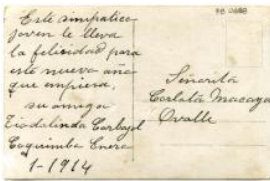 Este simpatico
joven te lleva
la felicidad para
este nuevo año
que empieza,
su amiga
Tiodalinda Carbajal
Coquimbo Enero
1-1914
Señorita
Carlota Macaya
Ovalle